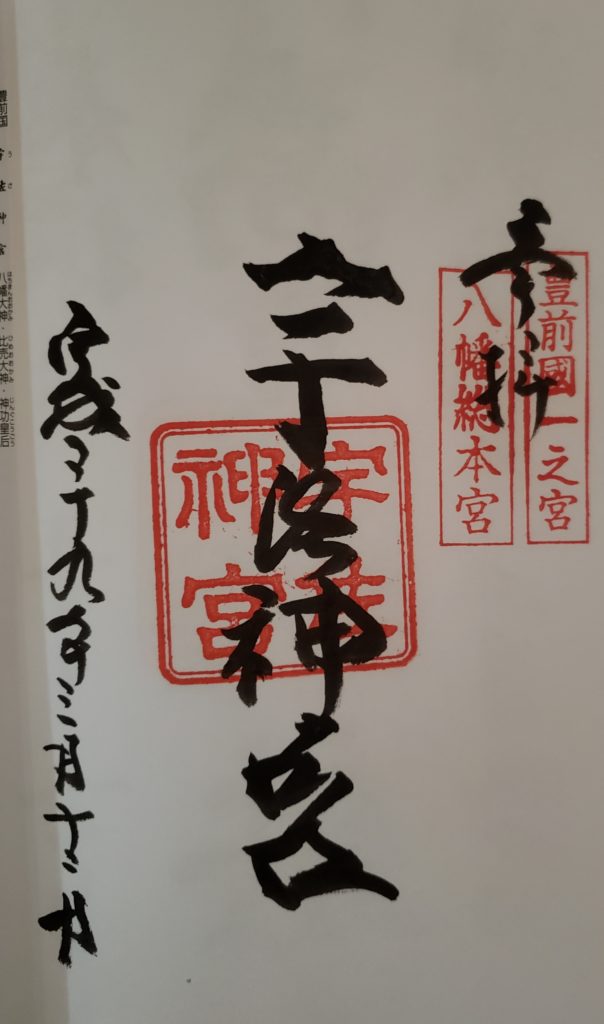 奉拝
豊前國一之宮
八幡総本宮
宇佐神宮
宇佐神宮
平成二十九年三月十二日
豊前国 宇佐神宮 八幡大神・比売大神・神功皇后